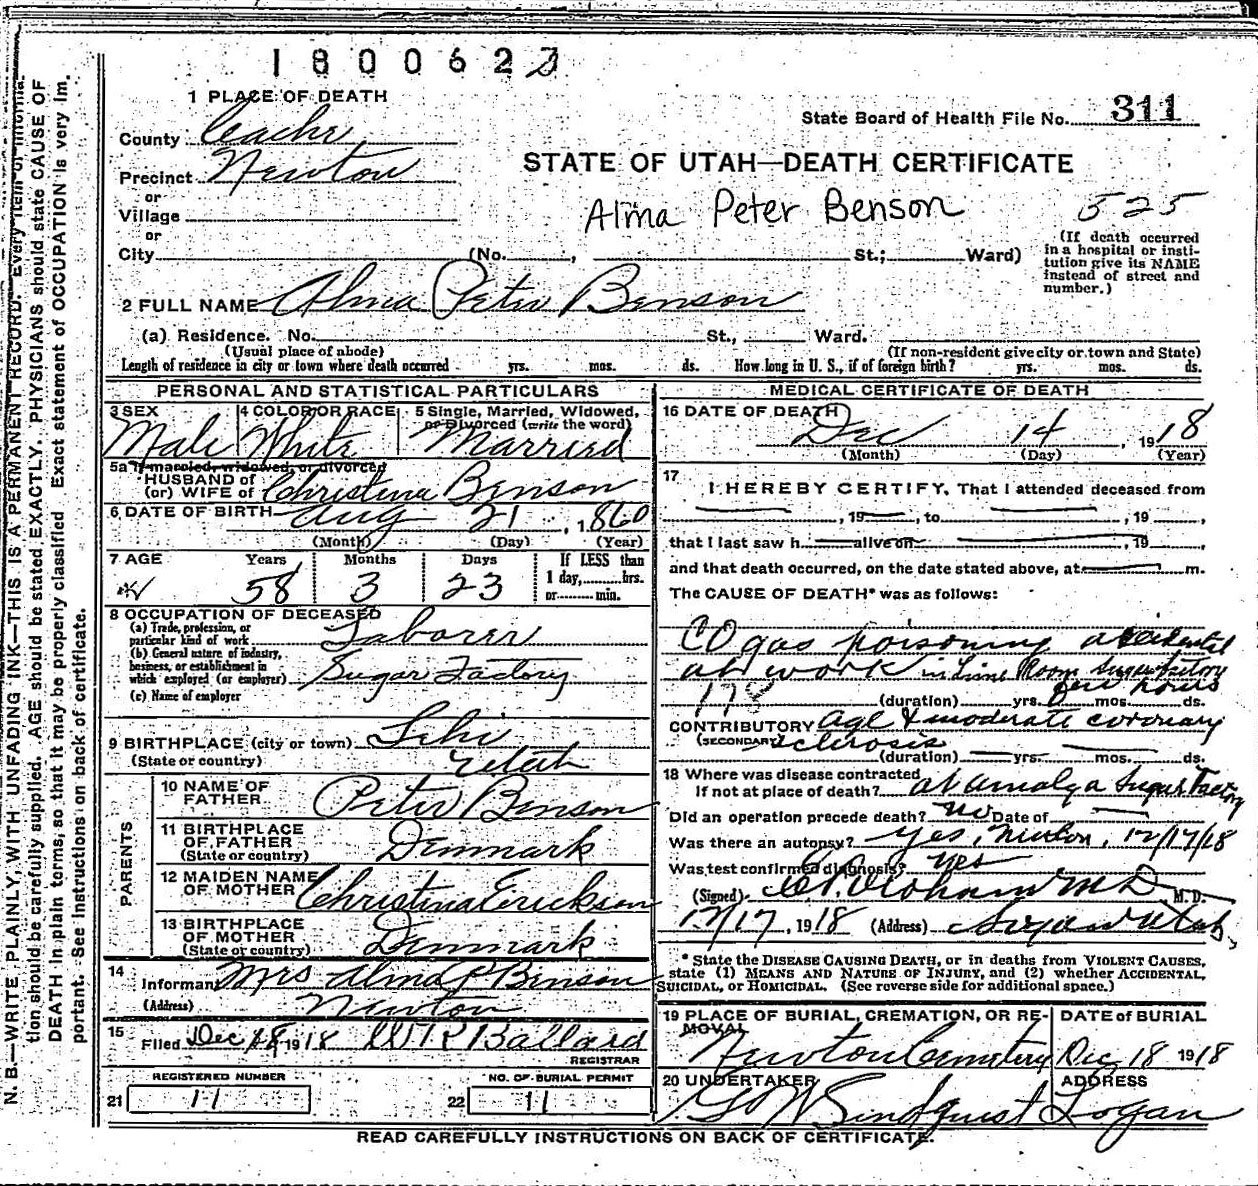 1800623
1 PLACE OF DEATH
State Board of Health File No. 311
County Cache
STATE OF UTAH—DEATH CERTIFICATE
Precinct Newton
or
Village
Alma Peter Benson 525
or
City (No. , St.; Ward)
(If death occurred
in a hospital or insti-
tution give its NAME
instead of street and
number.)
2 FULL NAME Alma Peter Benson
(a) Residence. No. St., Ward.
(Usual place of abode) (If non-resident give city or town and State)
Length of residence in city or town where death occurred yrs. mos. ds. How long in U. S., if of foreign birth? yrs. mos. ds.
PERSONAL AND STATISTICAL PARTICULARS
3 SEX 4 COLOR OR RACE 5 Single, Married, Widowed,
or Divorced (write the word)
Male White Married
5a If married, widowed, or divorced
HUSBAND of
(or) WIFE of Christina Benson
6 DATE OF BIRTH Aug 21, 1860
(Month) (Day) (Year)
7 AGE Years Months Days If LESS than
1 day, hrs.
or min.
58 3 23
8 OCCUPATION OF DECEASED
(a) Trade, profession, or
particular kind of work Laborer
(b) General nature of industry,
business, or establishment in
which employed (or employer) Sugar Factory
(c) Name of employer
9 BIRTHPLACE (city or town) Lehi
(State or country) Utah
PARENTS
10 NAME OF
FATHER Peter Benson
11 BIRTHPLACE
OF FATHER Denmark
(State or country)
12 MAIDEN NAME
OF MOTHER Christina Erickson
13 BIRTHPLACE
OF MOTHER Denmark
(State or country)
14
Informant Mrs Alma P Benson
(Address) Newton
15
Filed Dec 18 1918 W R Ballard
REGISTRAR
REGISTERED NUMBER NO. OF BURIAL PERMIT
21 11 22 11
MEDICAL CERTIFICATE OF DEATH
16 DATE OF DEATH
Dec 14, 1918
(Month) (Day) (Year)
17
I HEREBY CERTIFY, That I attended deceased from
, 19 , to , 19 ,
that I last saw h alive on , 19 ,
and that death occurred, on the date stated above, at m.
The CAUSE OF DEATH* was as follows:
CO gas poisoning accidental
at work in Lime Room Sugar factory
178 few hours
(duration) yrs. mos. ds.
CONTRIBUTORY Age & moderate coronary
(SECONDARY) sclerosis
(duration) yrs. mos. ds.
18 Where was disease contracted
If not at place of death? at Amalga Sugar Factory
Did an operation precede death? no Date of
Was there an autopsy? yes, Newton, 12/17/18
Was test confirmed diagnosis? yes
(Signed) MD M.D.
12/17, 1918 (Address) Utah
* State the DISEASE CAUSING DEATH, or in deaths from VIOLENT CAUSES,
state (1) MEANS AND NATURE OF INJURY, and (2) whether ACCIDENTAL,
SUICIDAL, or HOMICIDAL. (See reverse side for additional space.)
19 PLACE OF BURIAL, CREMATION, OR RE-
MOVAL
DATE of BURIAL
Newton Cemetery Dec 18 1918
20 UNDERTAKER ADDRESS
G W Lindquist Logan
READ CAREFULLY INSTRUCTIONS ON BACK OF CERTIFICATE.
N. B.—WRITE PLAINLY, WITH UNFADING INK—THIS IS A PERMANENT RECORD. Every item of informa-
tion should be carefully supplied. AGE should be stated EXACTLY. PHYSICIANS should state CAUSE OF
DEATH in plain terms, so that it may be properly classified. Exact statement of OCCUPATION is very im-
portant. See Instructions on back of certificate.